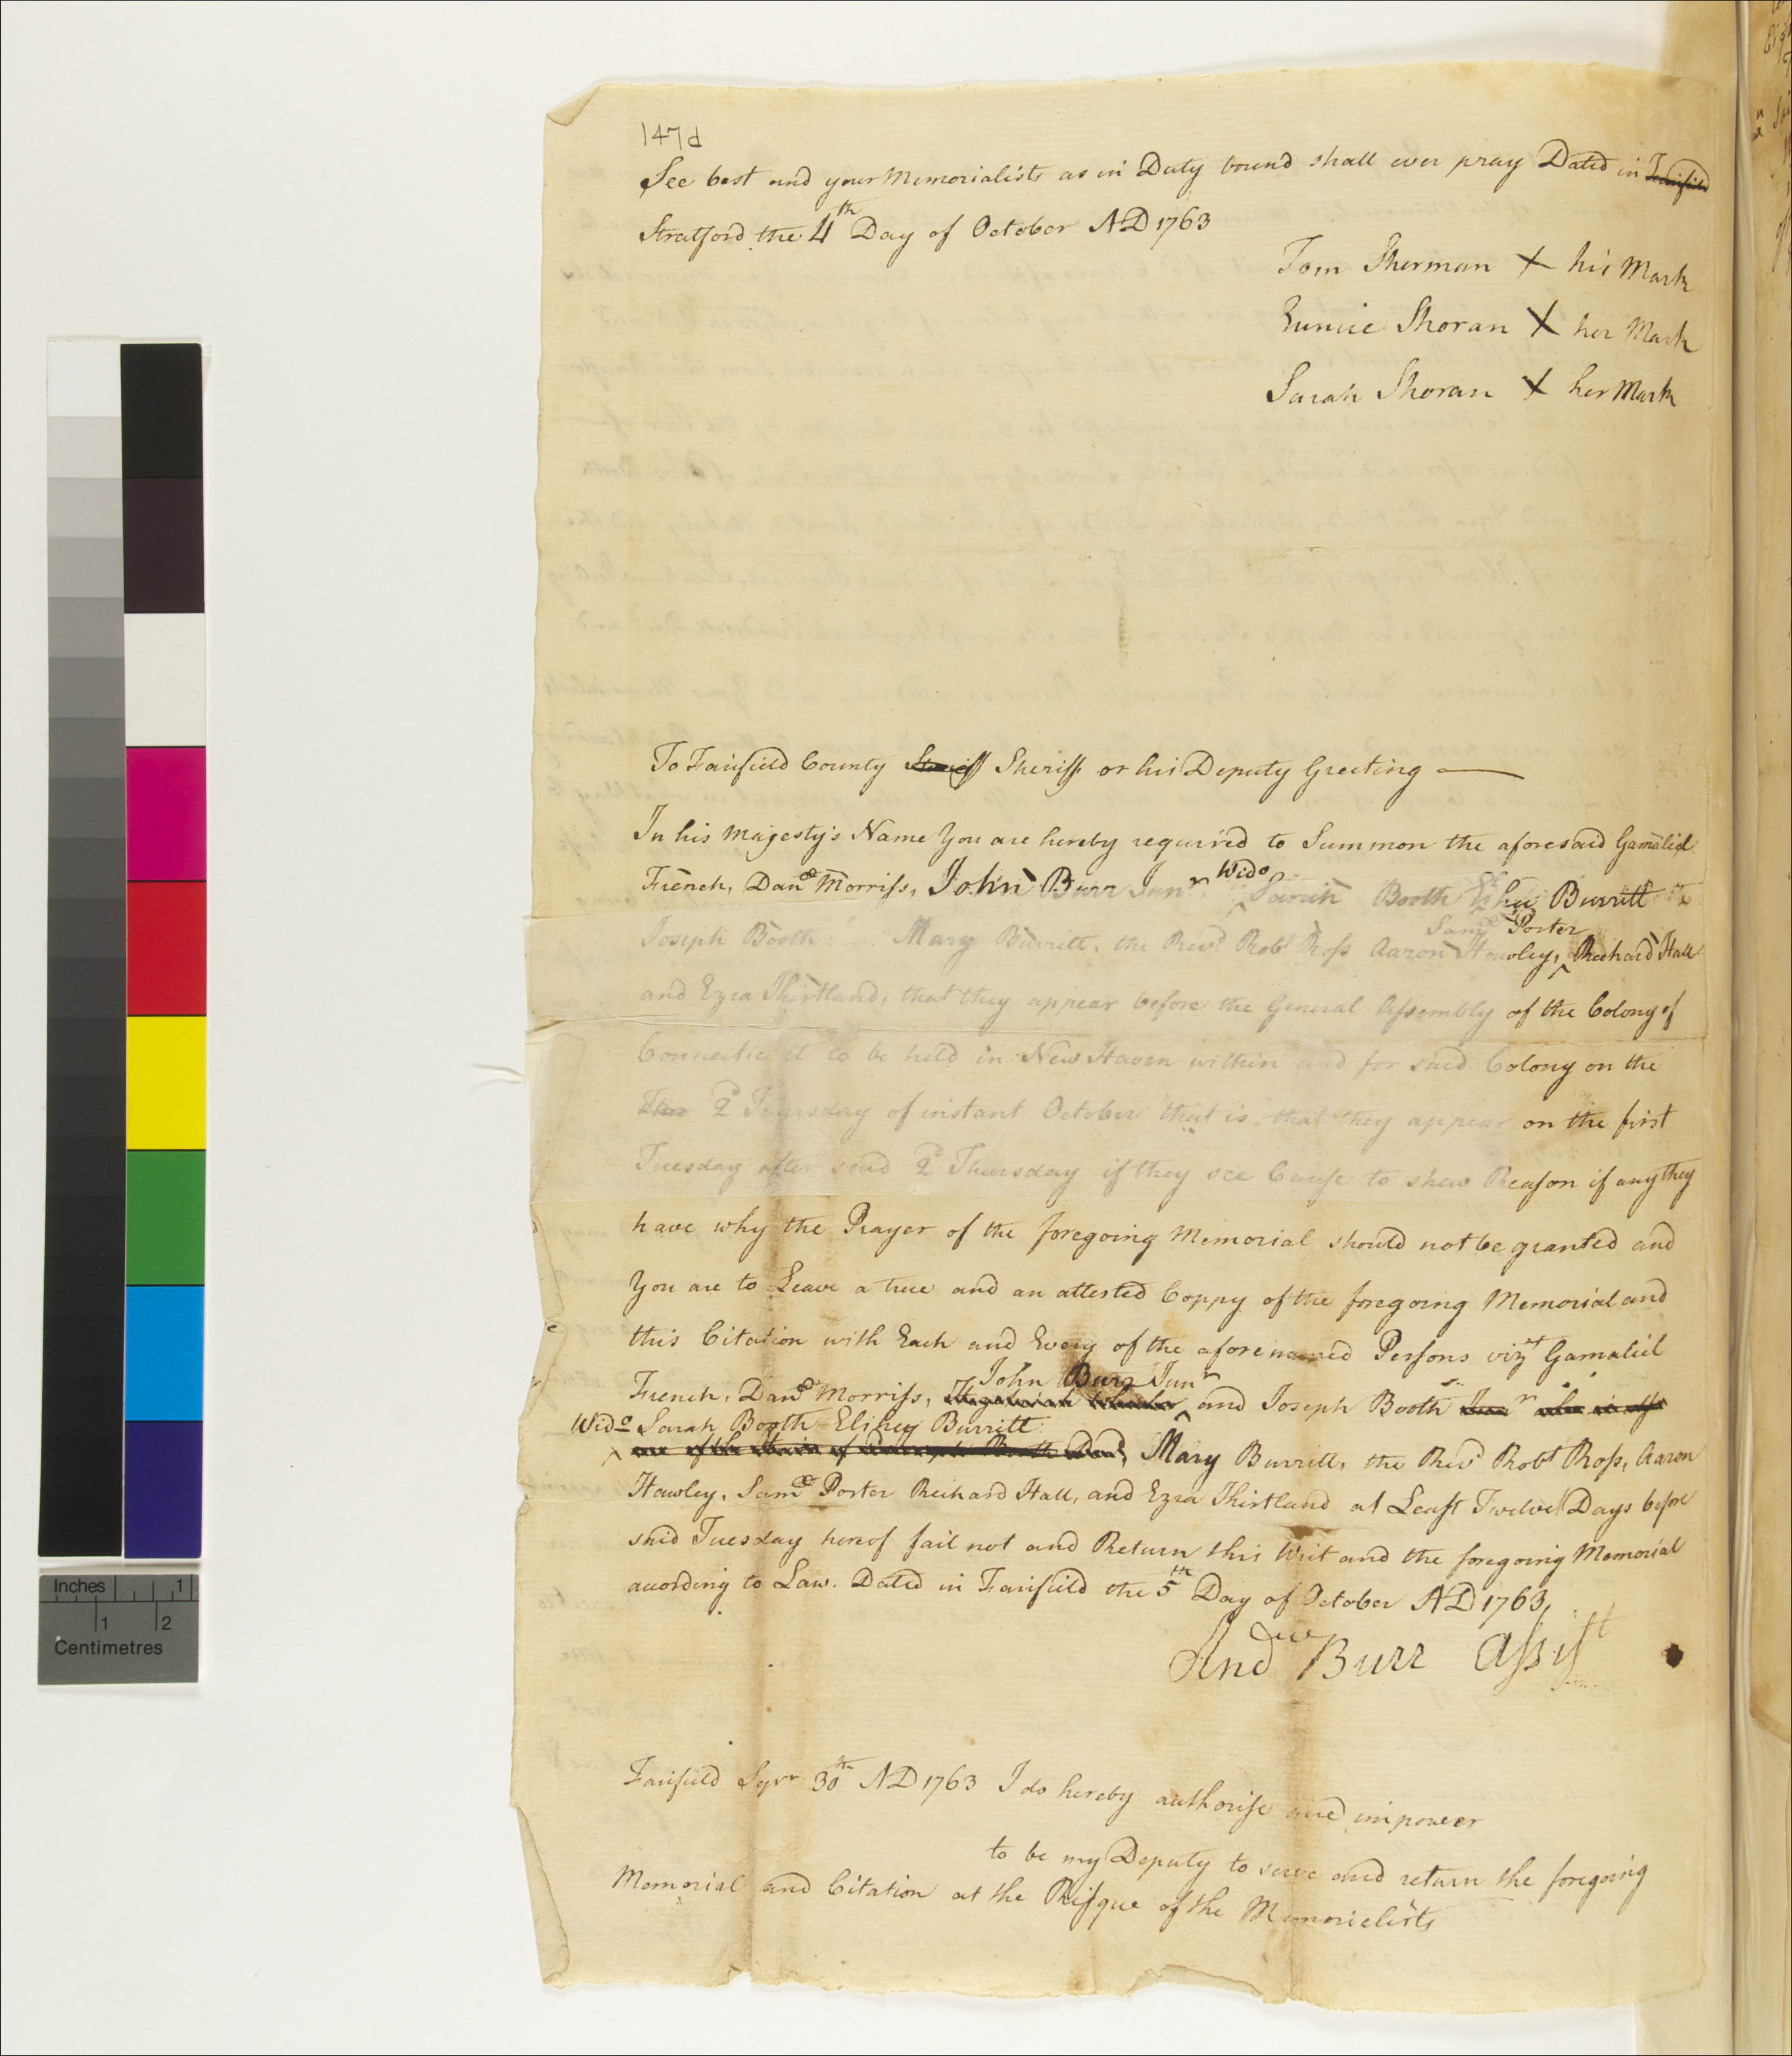 147d
See best and your Memorialists as in Duty bound shall ever pray Dated in Fairfield
Stratford the 4th Day of October AD 1763
Tom Sherman X his Mark
Eunice Shoran X her Mark
Sarah Shoran X her Mark
To Fairfield County Sheriff or his Deputy Greeting
In his Majesty's Name You are hereby required to Summon the aforesaid Gamaliel
French, Danll Morriss, John Burr Junr Wido Sarah Booth Elihu Burritt
Samll Porter
Joseph Booth Mary Burritt, the Revd Robt Ross Aaron Hawley, Richard Hall
and Ezra Kirtland, that they appear before the General Assembly of the Colony of
Connecticut to be held in New Haven within and for said Colony on the
2d Thursday of instant October that is that they appear on the first
Tuesday after said 2d Thursday if they see Cause to shew Reason if any they
have why the Prayer of the foregoing Memorial should not be granted and
You are to Leave a true and an attested Coppy of the foregoing Memorial and
this Citation with Each and Every of the aforenamed Persons vizt Gamaliel
John Burr Junr
French, Danll Morriss, and Joseph Booth Junr
Wido Sarah Booth Elihu Burritt
Mary Burritt, the Revd Robt Ross, Aaron
Hawley, Samll Porter Reichard Hall, and Ezra Kirtland at Least Twelve Days before
said Tuesday hereof fail not and Return this Writ and the foregoing Memorial
acording to Law. Dated in Fairfield the 5th Day of October AD 1763,
Andw Burr Assist
Fairfield 30th AD 1763 I do hereby authorise and impower
to be my Deputy to serve and return the foregoing
Memorial and Citation at the Risque of the Memorielists
Inches 1
1 2
Centimetres